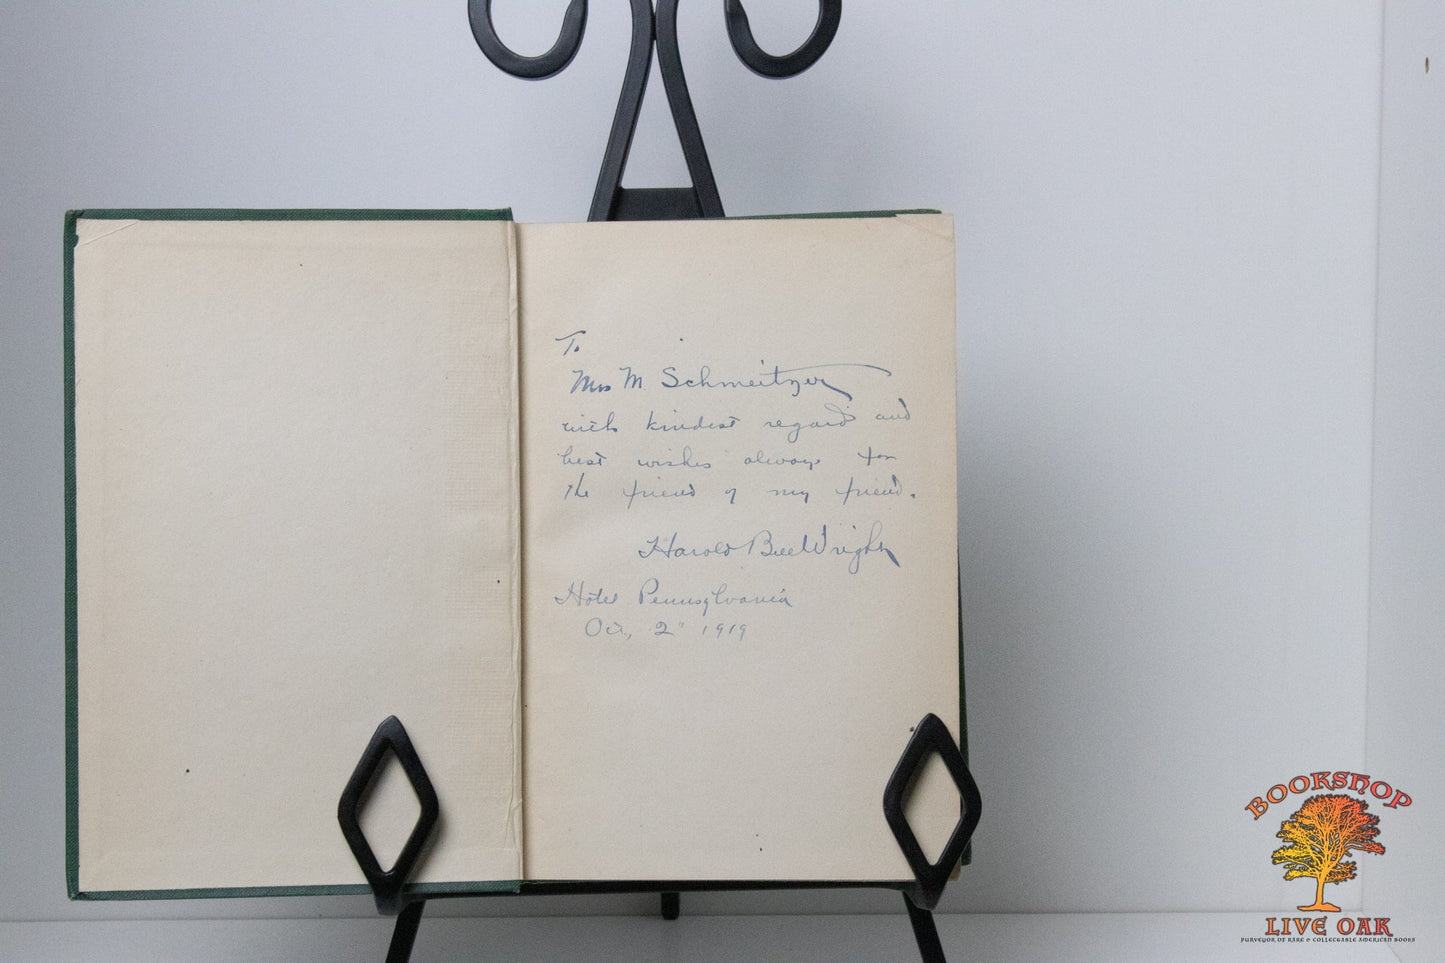 To
Mrs M. Schmeitzer
with kindest regard and
best wishes always for
the friend of my friend.
Harold Bell Wright
Hotel Pennsylvania
Oct, 2" 1919
BOOKSHOP
LIVE OAK
PURVEYOR OF RARE & COLLECTABLE AMERICAN BOOKS